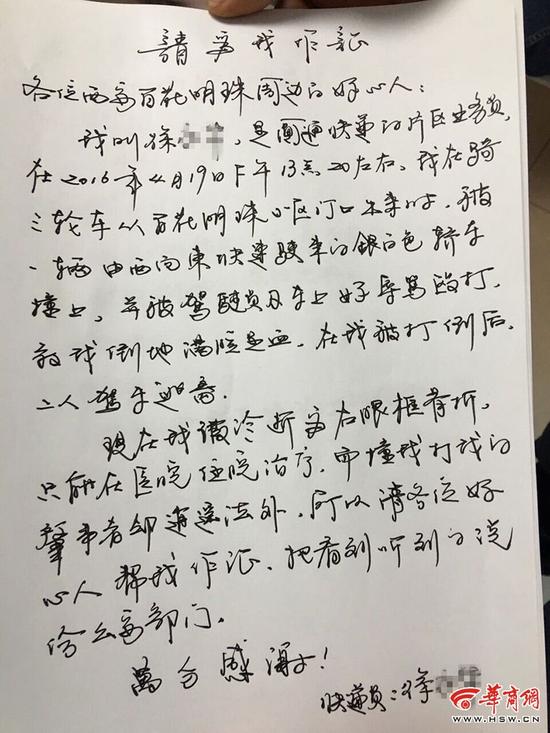 請为我作証
各位西安百花明珠周边的好心人：
我叫徐，是圆通快递的片区业务员，
在2016年4月19日下午13点20左右，我在骑
三轮车从百花明珠小区门口出来时，被
一辆由西向东快速驶来的銀白色轿车
撞上，并被驾驶员及车上好辱骂殴打，
致我倒地满脸是血，在我被打倒后，
二人驾车逃离。
现在我被诊断为右眼框骨折，
只能在医院住院治疗，而撞我打我的
肇事者却逍遥法外，所以请各位好
心人帮我作证，把看到听到的说
给公安部门。
萬分感谢！
快递员：徐
華商網
WWW.HSW.CN